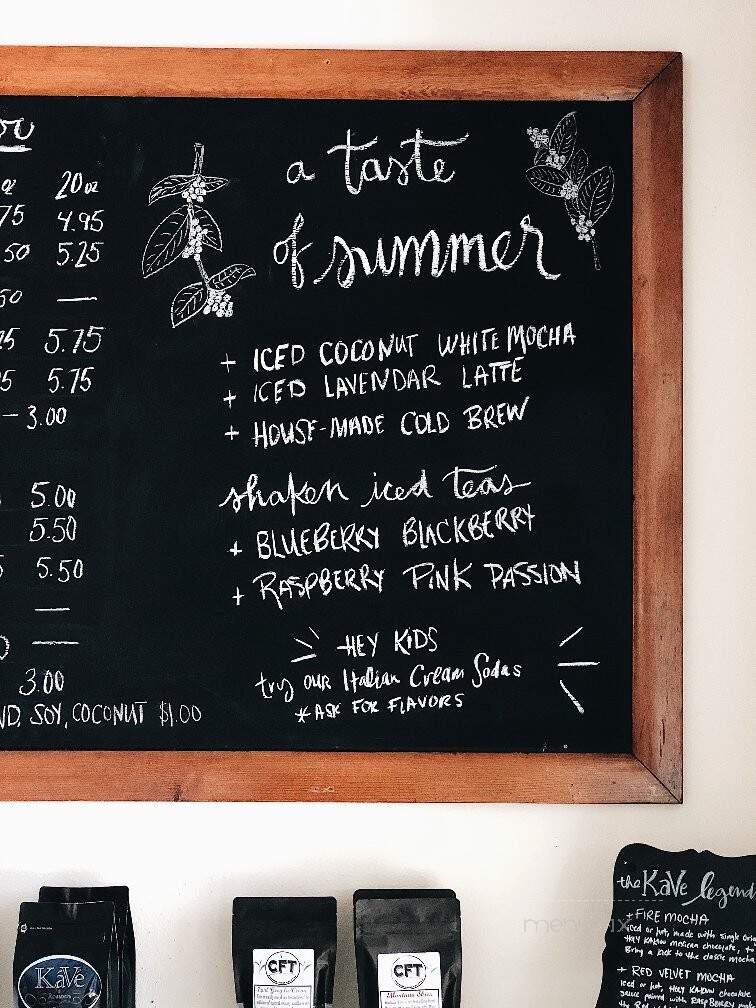 20oz
4.95
50 5.25
50 —
5.75
5.75
— 3.00
5.00
5.50
5.50
—
—
3.00
SOY, COCONUT $1.00
a taste
of summer
+ ICED COCONUT WHITE MOCHA
+ ICED LAVENDAR LATTE
+ HOUSE-MADE COLD BREW
shaken iced teas
+ BLUEBERRY BLACKBERRY
+ RASPBERRY PINK PASSION
HEY KIDS
try our Italian Cream Sodas
*ASK FOR FLAVORS
KaVe
ROASTERS
CFT
Earl Grey la Creme
CFT
the KaVe legend
+ FIRE MOCHA
iced or hot, made with single
HEY KAKOW mexican chocolate,
Bring a kick to the classic mocha
+ RED VELVET MOCHA
Iced or hot, HEY KAKOW chocolate
sauce RASPBERRY